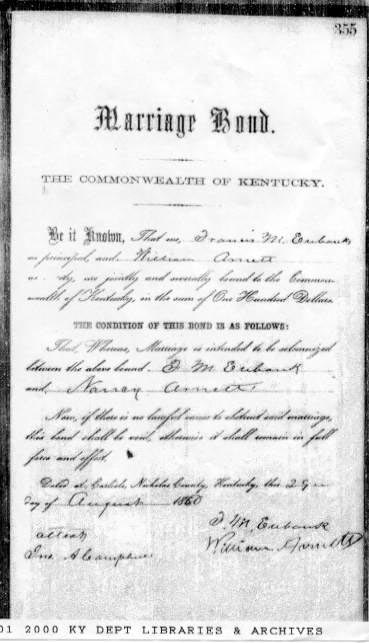 355
Marriage Bond.
THE COMMONWEALTH OF KENTUCKY.
Be it Known, That we, Francis M. Eubank
as principal, and William Arnett
as ty, are jointly and severally bound to the Common-
wealth of Kentucky, in the sum of One Hundred Dollars.
THE CONDITION OF THIS BOND IS AS FOLLOWS:
That, Whereas, Marriage is intended to be solemnized
between the above bound F M Eubank
and Nancy Arnett
Now, if there is no lawful cause to obstruct said marriage,
this bond shall be void, otherwise it shall remain in full
force and effect.
Dated at Carlisle, Nicholas County, Kentucky, this
day of August 1860
F. M. Eubank
William Arnett
attest
Jno. A Campbell
01 2000 KY DEPT LIBRARIES & ARCHIVES